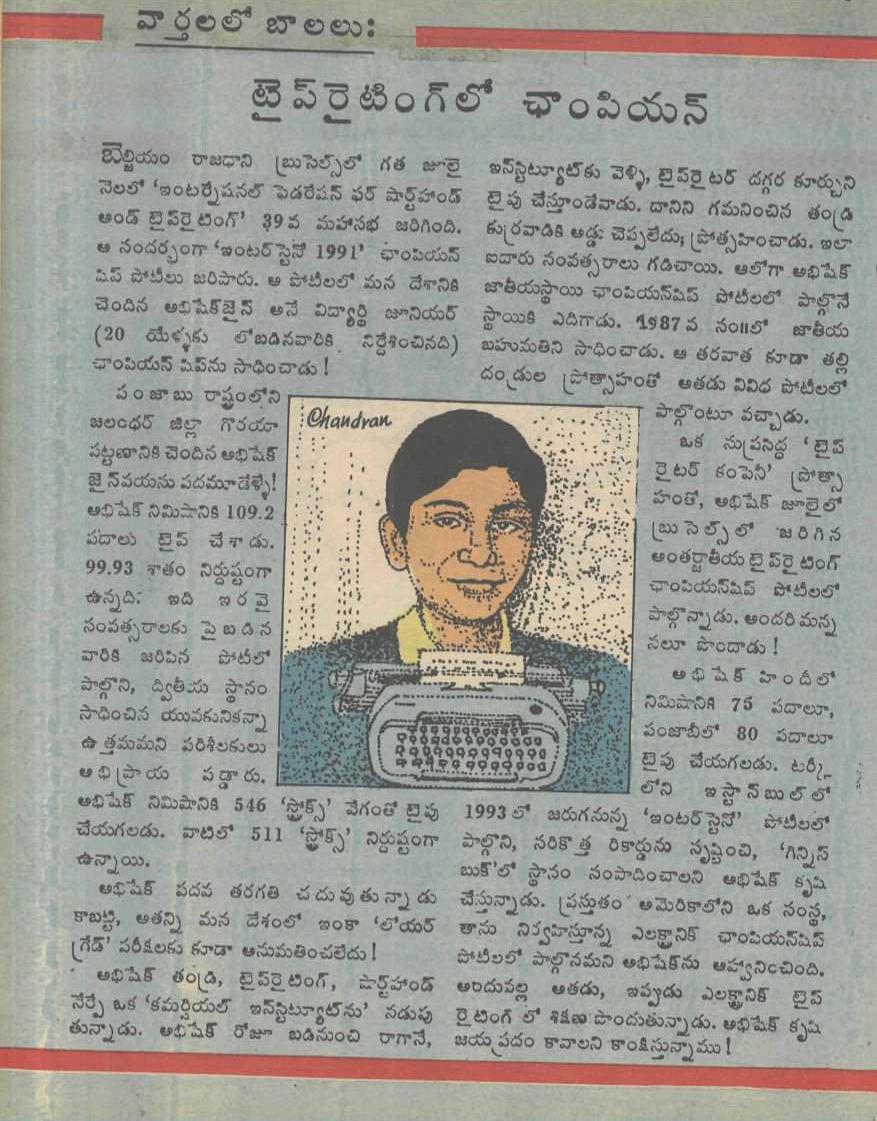 వార్తలలో బాలలు:
టైప్‌రైటింగ్‌లో ఛాంపియన్
బెల్జియం రాజధాని బ్రుసెల్స్‌లో గత జూలై
నెలలో ‘ఇంటర్నేషనల్ ఫెడరేషన్ ఫర్ షార్ట్‌హాండ్
అండ్ టైప్‌రైటింగ్’ 39వ మహాసభ జరిగింది.
ఆ సందర్భంగా ‘ఇంటర్‌స్టెనో 1991’ ఛాంపియన్
షిప్ పోటీలు జరిపారు. ఆ పోటీలలో మన దేశానికి
చెందిన అభిషేక్‌జైన్ అనే విద్యార్థి జూనియర్
(20 యేళ్ళకు లోబడినవారికి నిర్దేశించినది)
ఛాంపియన్ షిప్‌ను సాధించాడు!
పంజాబు రాష్ట్రంలోని
జలంధర్ జిల్లా గొరయా
పట్టణానికి చెందిన అభిషేక్
జైన్‌వయసు పదమూడేళ్ళే!
అభిషేక్ నిమిషానికి 109.2
పదాలు టైప్ చేశాడు.
99.93 శాతం నిర్దుష్టంగా
ఉన్నది. ఇది ఇరవై
సంవత్సరాలకు పైబడిన
వారికి జరిపిన పోటీలో
పాల్గొని, ద్వితీయ స్థానం
సాధించిన యువకునికన్నా
ఉత్తమమని పరిశీలకులు
అభిప్రాయ పడ్డారు.
అభిషేక్ నిమిషానికి 546 ‘స్ట్రోక్స్’ వేగంతో టైపు
చేయగలడు. వాటిలో 511 ‘స్ట్రోక్స్’ నిర్దుష్టంగా
ఉన్నాయి.
అభిషేక్ పదవ తరగతి చదువుతున్నాడు
కాబట్టి, అతన్ని మన దేశంలో ఇంకా ‘లోయర్
గ్రేడ్’ పరీక్షలకు కూడా అనుమతించలేదు!
అభిషేక్ తండ్రి, టైప్‌రైటింగ్, షార్ట్‌హాండ్
నేర్పే ఒక ‘కమర్షియల్ ఇన్‌స్టిట్యూట్‌ను’ నడుపు
తున్నాడు. అభిషేక్ రోజూ బడినుంచి రాగానే,
ఇన్‌స్టిట్యూట్‌కు వెళ్ళి, టైప్‌రైటర్ దగ్గర కూర్చుని
టైపు చేస్తూండేవాడు. దానిని గమనించిన తండ్రి
కుర్రవాడికి అడ్డు చెప్పలేదు; ప్రోత్సహించాడు. ఇలా
ఐదారు సంవత్సరాలు గడిచాయి. ఆలోగా అభిషేక్
జాతీయస్థాయి ఛాంపియన్‌షిప్ పోటీలలో పాల్గొనే
స్థాయికి ఎదిగాడు. 1987వ సం॥లో జాతీయ
బహుమతిని సాధించాడు. ఆ తరవాత కూడా తల్లి
దండ్రుల ప్రోత్సాహంతో అతడు వివిధ పోటీలలో
పాల్గొంటూ వచ్చాడు.
ఒక సుప్రసిద్ధ ‘టైప్
రైటర్ కంపెనీ’ ప్రోత్సా
హంతో, అభిషేక్ జూలైలో
బ్రుసెల్స్‌లో జరిగిన
అంతర్జాతీయ టైప్‌రైటింగ్
ఛాంపియన్‌షిప్ పోటీలలో
పాల్గొన్నాడు. అందరి మన్న
నలూ పొందాడు!
అభిషేక్ హిందీలో
నిమిషానికి 75 పదాలూ,
పంజాబీలో 80 పదాలూ
టైపు చేయగలడు. టర్కీ
లోని ఇస్తాన్‌బుల్‌లో
1993లో జరుగనున్న ‘ఇంటర్‌స్టెనో’ పోటీలలో
పాల్గొని, సరికొత్త రికార్డును సృష్టించి, ‘గిన్నిస్
బుక్’లో స్థానం సంపాదించాలని అభిషేక్ కృషి
చేస్తున్నాడు. ప్రస్తుతం అమెరికాలోని ఒక సంస్థ,
తాను నిర్వహిస్తూన్న ఎలక్ట్రానిక్ ఛాంపియన్‌షిప్
పోటీలలో పాల్గొనమని అభిషేక్‌ను ఆహ్వానించింది.
అందువల్ల అతడు, ఇప్పుడు ఎలక్ట్రానిక్ టైప్
రైటింగ్ లో శిక్షణ పొందుతున్నాడు. అభిషేక్ కృషి
జయప్రదం కావాలని కాంక్షిస్తున్నాము!
Chandran